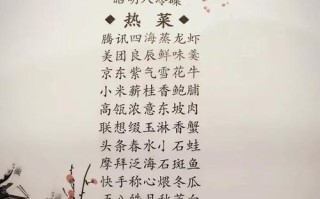 热菜
腾讯四海蒸龙虾
美团良辰鲜味羹
京东紫气雪花牛
小米薪桂香鲍脯
高瓴浓意东坡肉
联想缀玉淋香蟹
头条春水小石蛙
摩拜泛海石斑鱼
快手称心煨冬瓜